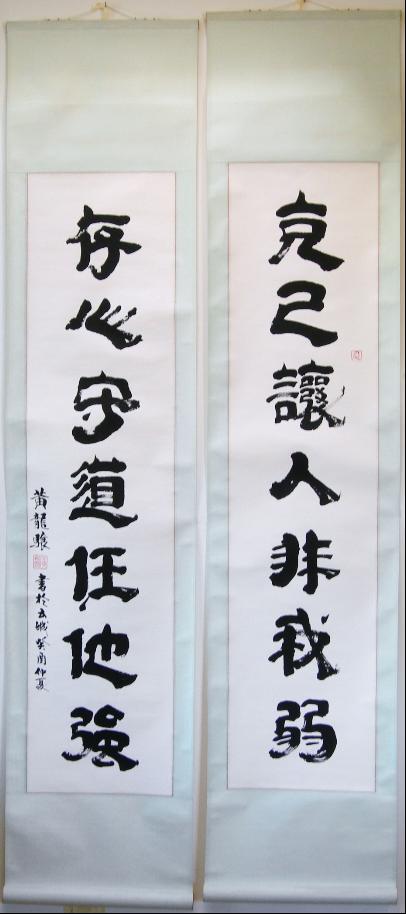 克己讓人非我弱
存心守道任他強
黃龍驤
書於玄城癸酉仲夏